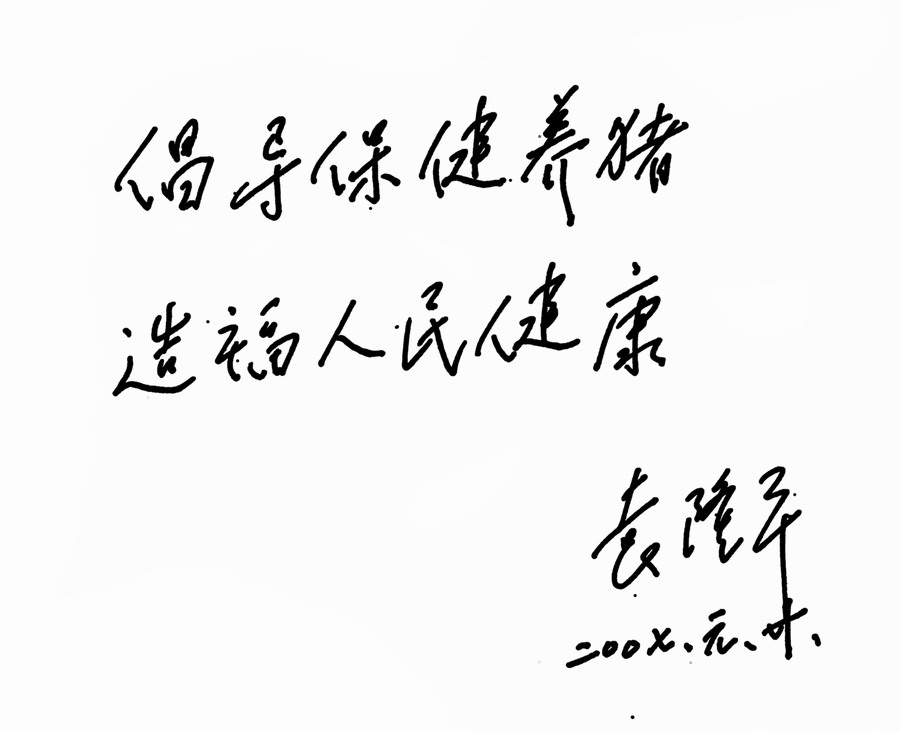 倡导保健养猪
造福人民健康
袁隆平
二00七、元、